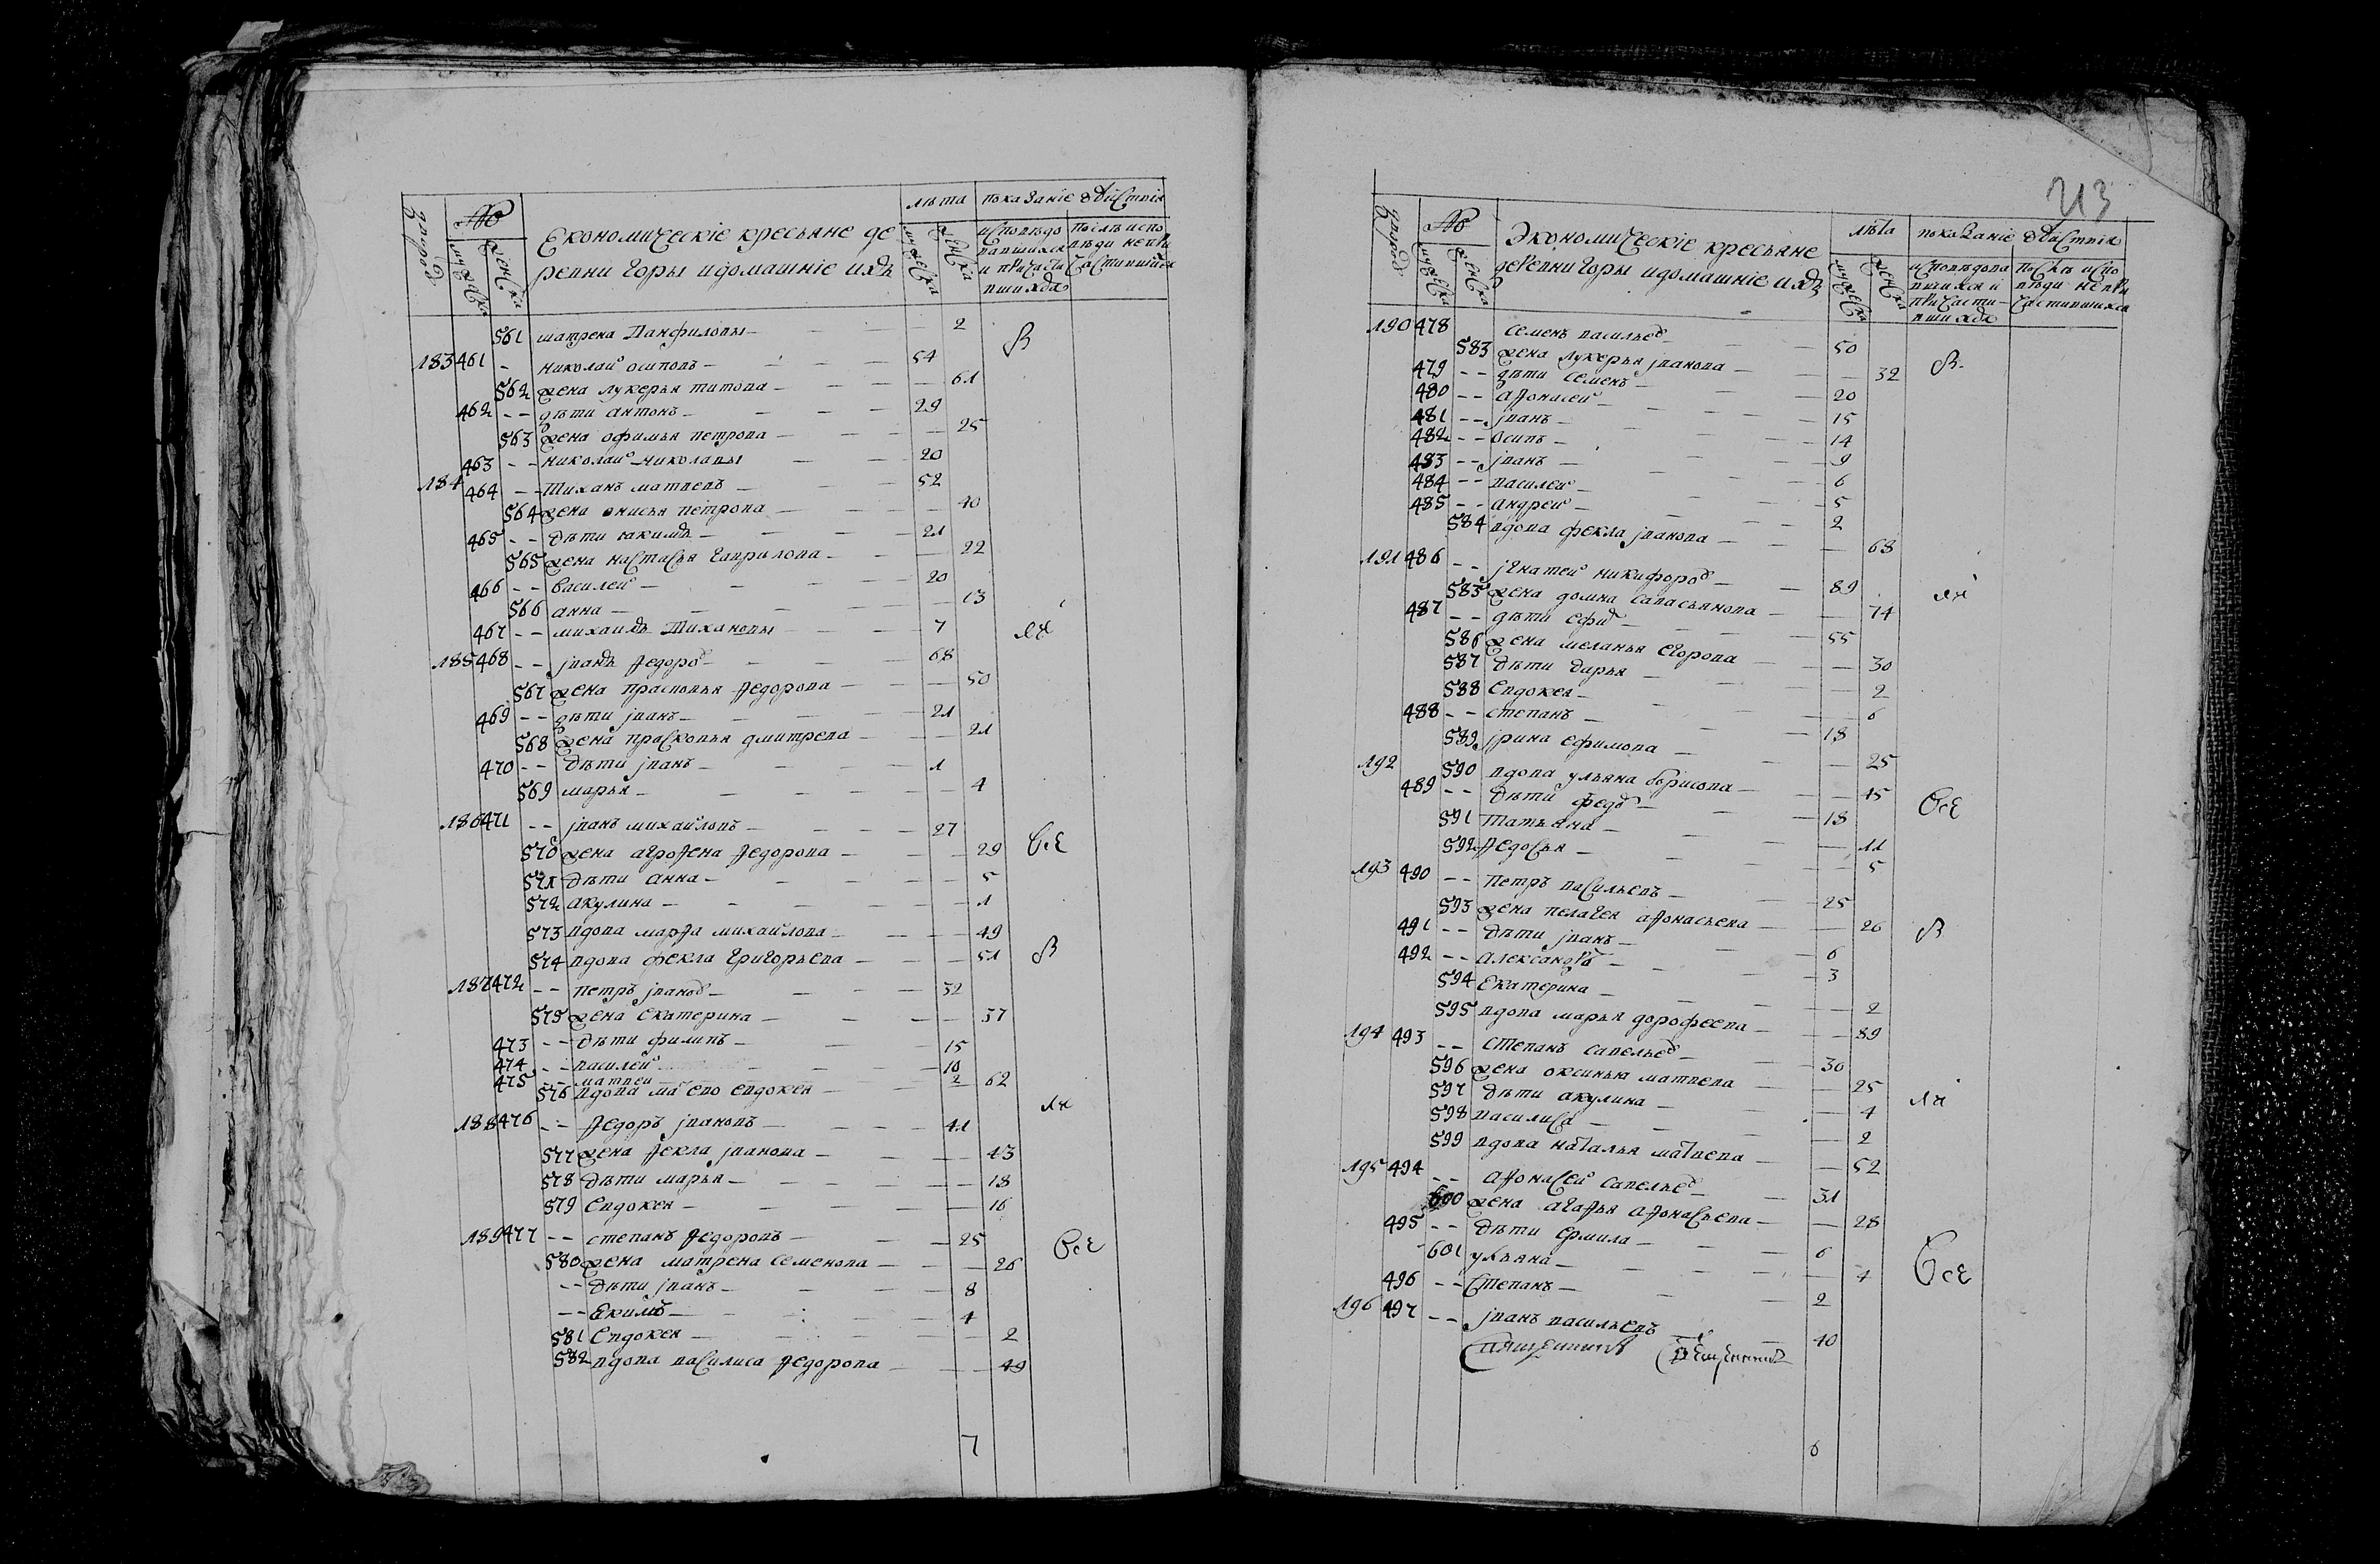 № лѣта показаніе дѣйствія
Економическіе крестьяне де
ревни горы и домашніе ихъ
мужеска женска мужеска женска
561 матрена Панфилова — 2
183 461 николай осиповъ — 54
562 жена лукерья титова — 61
462 дѣти антонъ — 29
563 жена офимья петрова — 25
463 николай николавы — 20
184 464 Тиханъ матвевъ — 52
564 жена анисья петрова — 40
465 дѣти якимъ — 21
565 жена настасья гаврилова — 22
466 василей — 20
566 анна — 13
467 михаилъ Тихановы — 7
185 468 іванъ Ѳедоров — 68
567 жена прасковья Ѳедорова — 50
469 дѣти іванъ — 21
568 жена прасковья дмитрева — 21
470 дѣти іванъ — 1
569 марья — 4
186 471 іванъ михайловъ — 27
570 жена агроѲена Ѳедорова — 29 все
571 дѣти анна — 5
572 акулина — 1
573 вдова марѲа михайлова — 49
574 вдова фекла григорьева — 51
187 472 петръ іванов — 32
575 жена екатерина — 37
473 дѣти филипъ — 15
474 василей — 10
475 матвей — 2
576 вдова ма ево евдокея — 62
188 476 Ѳедоръ івановъ — 41
577 жена Ѳекла іванова — 43
578 дѣти марья — 18
579 Евдокея — 16
189 477 степанъ Ѳедоровъ — 25
580 жена матрена семенова — 26 все
дѣти іванъ — 8
Екимъ — 4
581 Евдокея — 2
582 вдова василиса Ѳедорова — 49
7
213
№ лѣта показаніе дѣйствія
Экономическіе крестьяне
деревни горы и домашніе ихъ
мужеска женска мужеска женска
190 478 Семенъ васильев — 50
583 жена лукерья іванова — 32
479 дѣти семенъ — 20
480 аѲонасей — 15
481 іванъ — 14
482 осипъ — 9
483 іванъ — 6
484 василей — 5
485 андрей — 2
584 вдова фекла іванова — 68
191 486 ігнатей никифоров — 89
585 жена домна савасьянова — 74
487 дѣти ефи — 55
586 жена меланья егорова — 30
587 дѣти дарья — 2
588 Евдокея — 6
488 степанъ — 18
589 ірина ефимова — 25
192 590 вдова ульяна борисова — 45
489 дѣти федо — 18 все
591 Татьяна — 11
592 Ѳедосья — 5
193 490 Петръ васильевъ — 25
593 жена пелагея аѲонасьева — 26
491 дѣти іванъ — 6
492 александра — 3
594 Екатерина — 2
595 вдова марья дорофеева — 89
194 493 степанъ савельев — 30
596 жена оксинья матвева — 25
597 дѣти акулина — 4
598 василиса — 2
599 вдова наталья матвева — 52
195 494 аѲонасей савельев — 31
600 жена агаѲья аѲонасьева — 28
495 дѣти ермила — 6
601 ульяна — 4 все
496 Степанъ — 2
196 497 іванъ васильевъ — 40
6